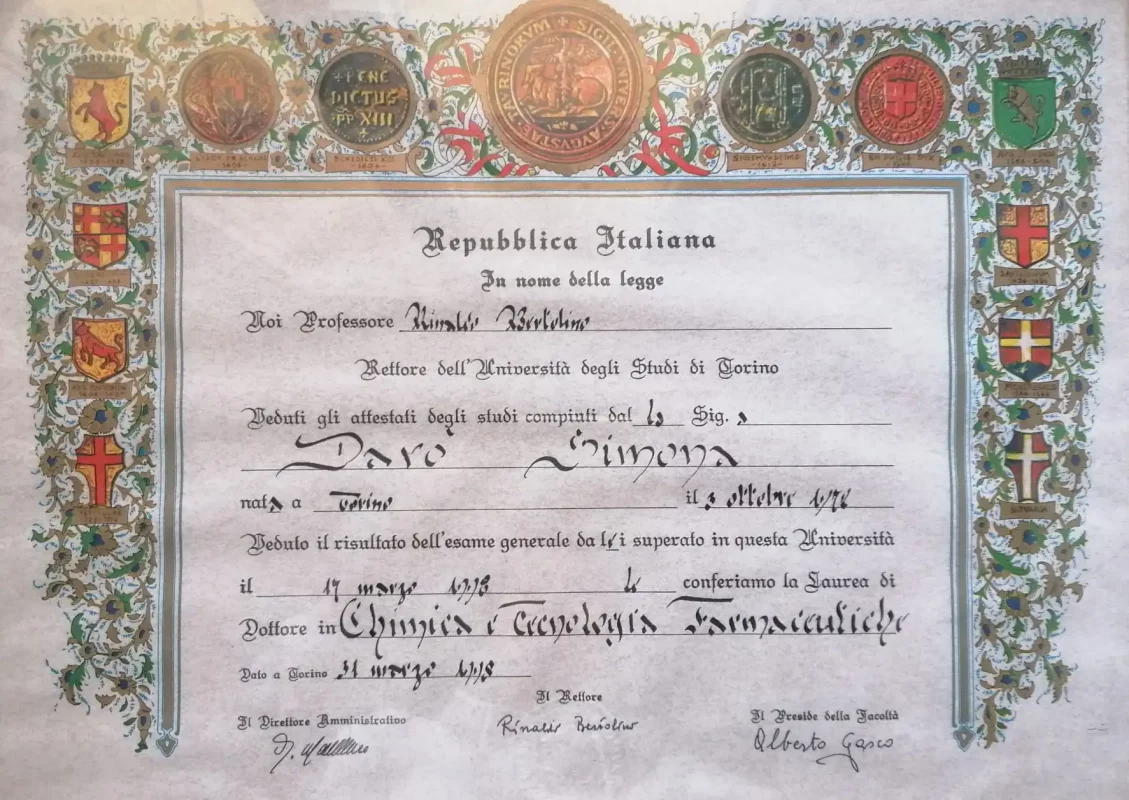 AVGVSTAE · TAVRINORVM + SIGILL · VNIVERS ·
+ BENE
DICTUS
· PP XIII
Repubblica Italiana
In nome della legge
Noi Professore Rinaldo Bertolino
Rettore dell'Università degli Studi di Torino
Veduti gli attestati degli studi compiuti dal la Sig. a
Darò Simona
nata a Torino il 3 ottobre
Veduto il risultato dell'esame generale da lei superato in questa Università
il 17 marzo 1998 le conferiamo la Laurea di
Dottore in Chimica e Tecnologia Farmaceutiche
Dato a Torino 31 marzo 1998
Il Rettore
Il Direttore Amministrativo Rinaldo Bertolino Il Preside della Facoltà
Alberto Gasco